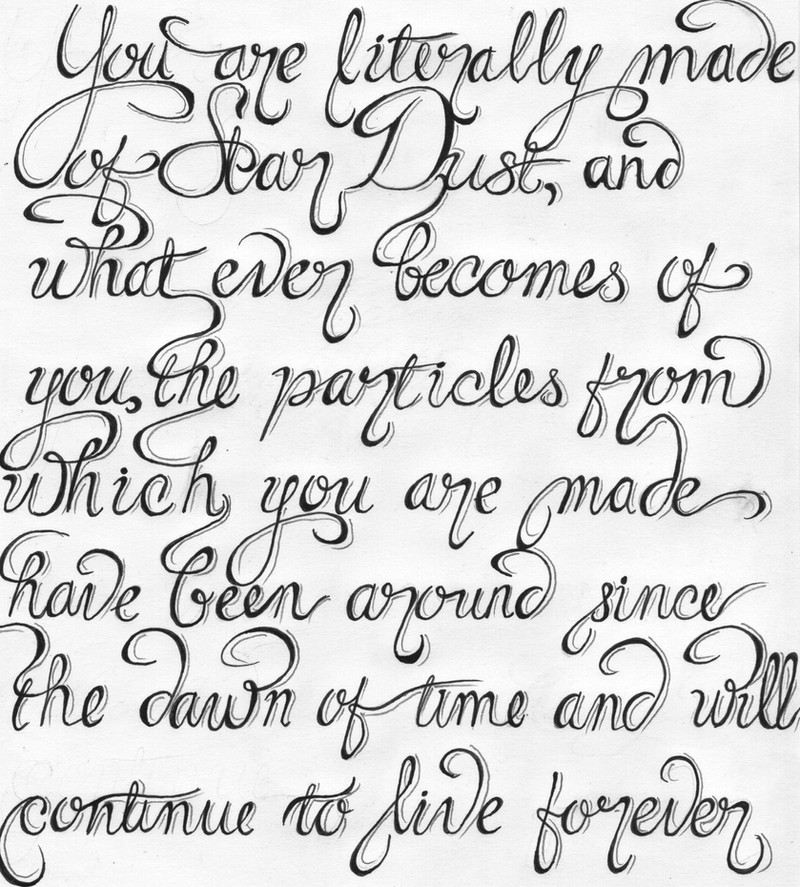 You are literally made
of Star Dust, and
what ever becomes of
you, the particles from
which you are made
have been around since
the dawn of time and will
continue to live forever